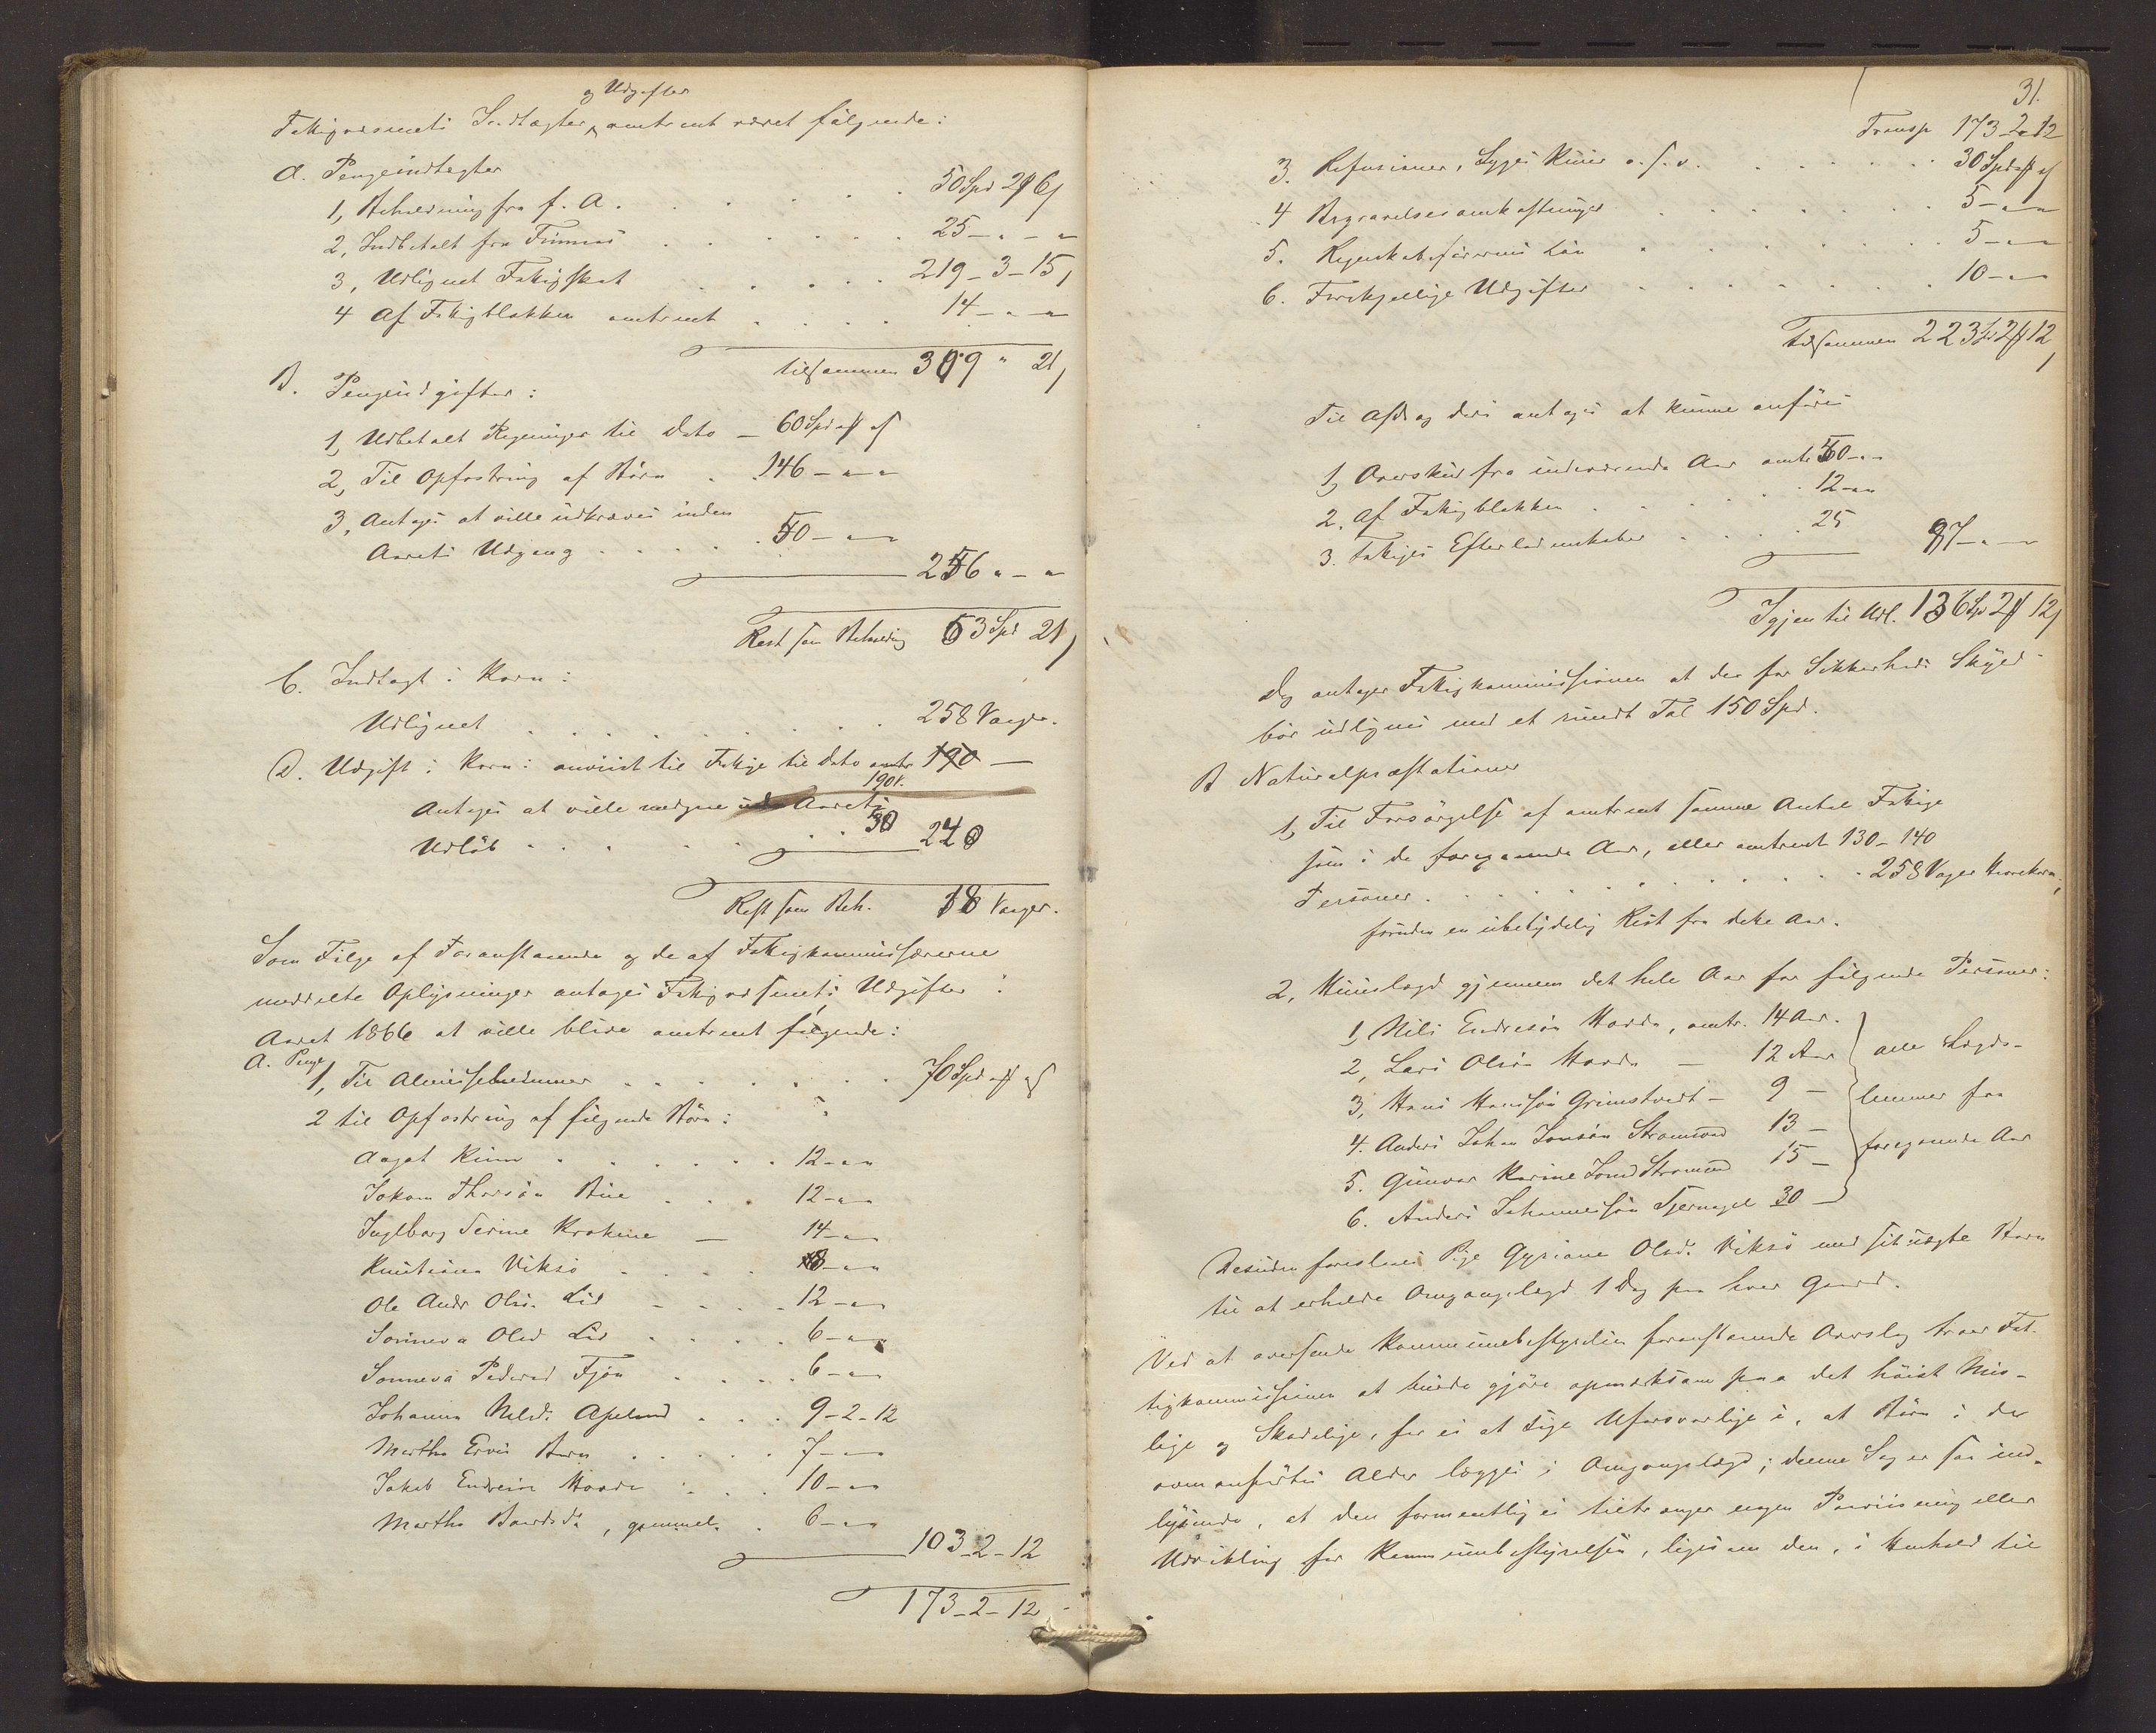 og Udgifter
Fattigvæsenets Indtægter omtrent været følgende:
A. Pengeindtægter
1, Beholdning fra f. A. 50 Spd 2 # 6 /
2, Indbetalt fra Finnaas 25 - " - "
3, Udlignet Fattigskat 219 - 3 - 15 /
4 Af Fattigblokken omtrent 14 - " - "
tilsammen 309 " 21 /
B. Pengeudgifter:
1, Udbetalt Regninger til Dato - 60 Spd " # " /
2, Til Opfostring af Børn 146 - " - "
3, Antages at ville udkræves inden
Aarets Udgang 50 - " - "
256 " - "
Rest som Beholdning 53 Spd 21 /
C. Indtægt i Korn:
Udlignet 258 Vaager.
D. Udgift i Korn: anviist til Fattige til Dato omtr 190 -
190 V.
Antages at ville medgaae Aarets
Udløb 30 220
Rest som Beh. 38 Vaager.
Som Følge af Foranstaaende og de af Fattigkommissærerne
meddelte Oplysninger antages Fattigvæsenets Udgifter i
Aaret 1866 at ville blive omtrent følgende:
A. Penge
1, Til Almisselemmer 70 Spd " # " /
2 til Opfostring af følgende Børn:
Aagot 12 - " - "
Jokum Thorsøn 12 - " - "
Ingborg Serine 14 - " - "
Viksø 8 - " - "
Ole Andr Ols. Lid 12 - " - "
Sonneva Olsd Lid 6 - " - "
Sonneva Pedersd Fjøn 6 - " - "
Johanna Nilsd. Apeland 9 - 2 - 12
Martha Børn 7 - " - "
Jakob Endresen Hovda 10 - " - "
Martha Baardsd., gammel 6 - " - "
103 - 2 - 12
173 - 2 - 12
31.
Transp 173 - 2 - 12
3. Refusioner, Syges Kuur o. s. v. 30 Spd " # " /
4 Begravelsesomkostninger 5 - " - "
5. Regnskabsførerens Løn 5 - " - "
6. Forskjellige Udgifter 10 - " - "
Tilsammen 223 Sp 2 # 12 /
Til Afdrag deri antages at kunne anføres
1, Overskud fra indeværende Aar omtr 50 - " - "
2. Af Fattigblokken 12 - " - "
3. Fattiges Efterladenskaber 25 87 - " - "
Igjen til Udl. 136 Sp 2 # 12 /
Dog antager Fattigkommissionen at der for Sikkerheds Skyld
bør udlignes med et rundt Tal 150 Spd.
B Naturalpræstationer
1, Til Forsørgelse af omtrent samme Antal Fattige
som i de foregaaende Aar, eller omtrent 130 - 140
Personer 258 Vager Havrekorn,
foruden en ubetydelig Rest fra dette Aar.
2, Huuslægd gjennem det hele Aar for følgende Personer:
1, Nils Endresøn Hovda, omtr. 14 Aar.
2, Lars Olsøn Hovda - 12 Aar alle Lægds-
3, Hans Hansøn Grimstvedt - 9 - lemmer fra
4. Anders Johan Jonsøn Strømsund 13 - foregaaende Aar
5. Gunvor Karine Jonsd Strømsund 15 -
6. Anders Johannessøn Tjernagel 30 -
Desuden foreslaaes Pige Gyriane Olsd. Viksø med sit uægte Barn
til at erholde Omgangslægd 1 Dag paa hver Gaard.
Ved at oversende Kommunebestyrelsen foranstaaende Overslag troer Fat-
tigkommissionen at burde gjøre opmærksom paa det høist Mis-
lige og Skadelige, for ei at sige Uforsvarlige i, at Børn i den
ovenanførte Alder lægges i Omgangslægd; denne Sag er saa ind-
lysende, at den formentlig ei tiltrænger nogen Paaviisning eller
Udvikling for Kommunebestyrelsen, ligesom den, i Henhold til